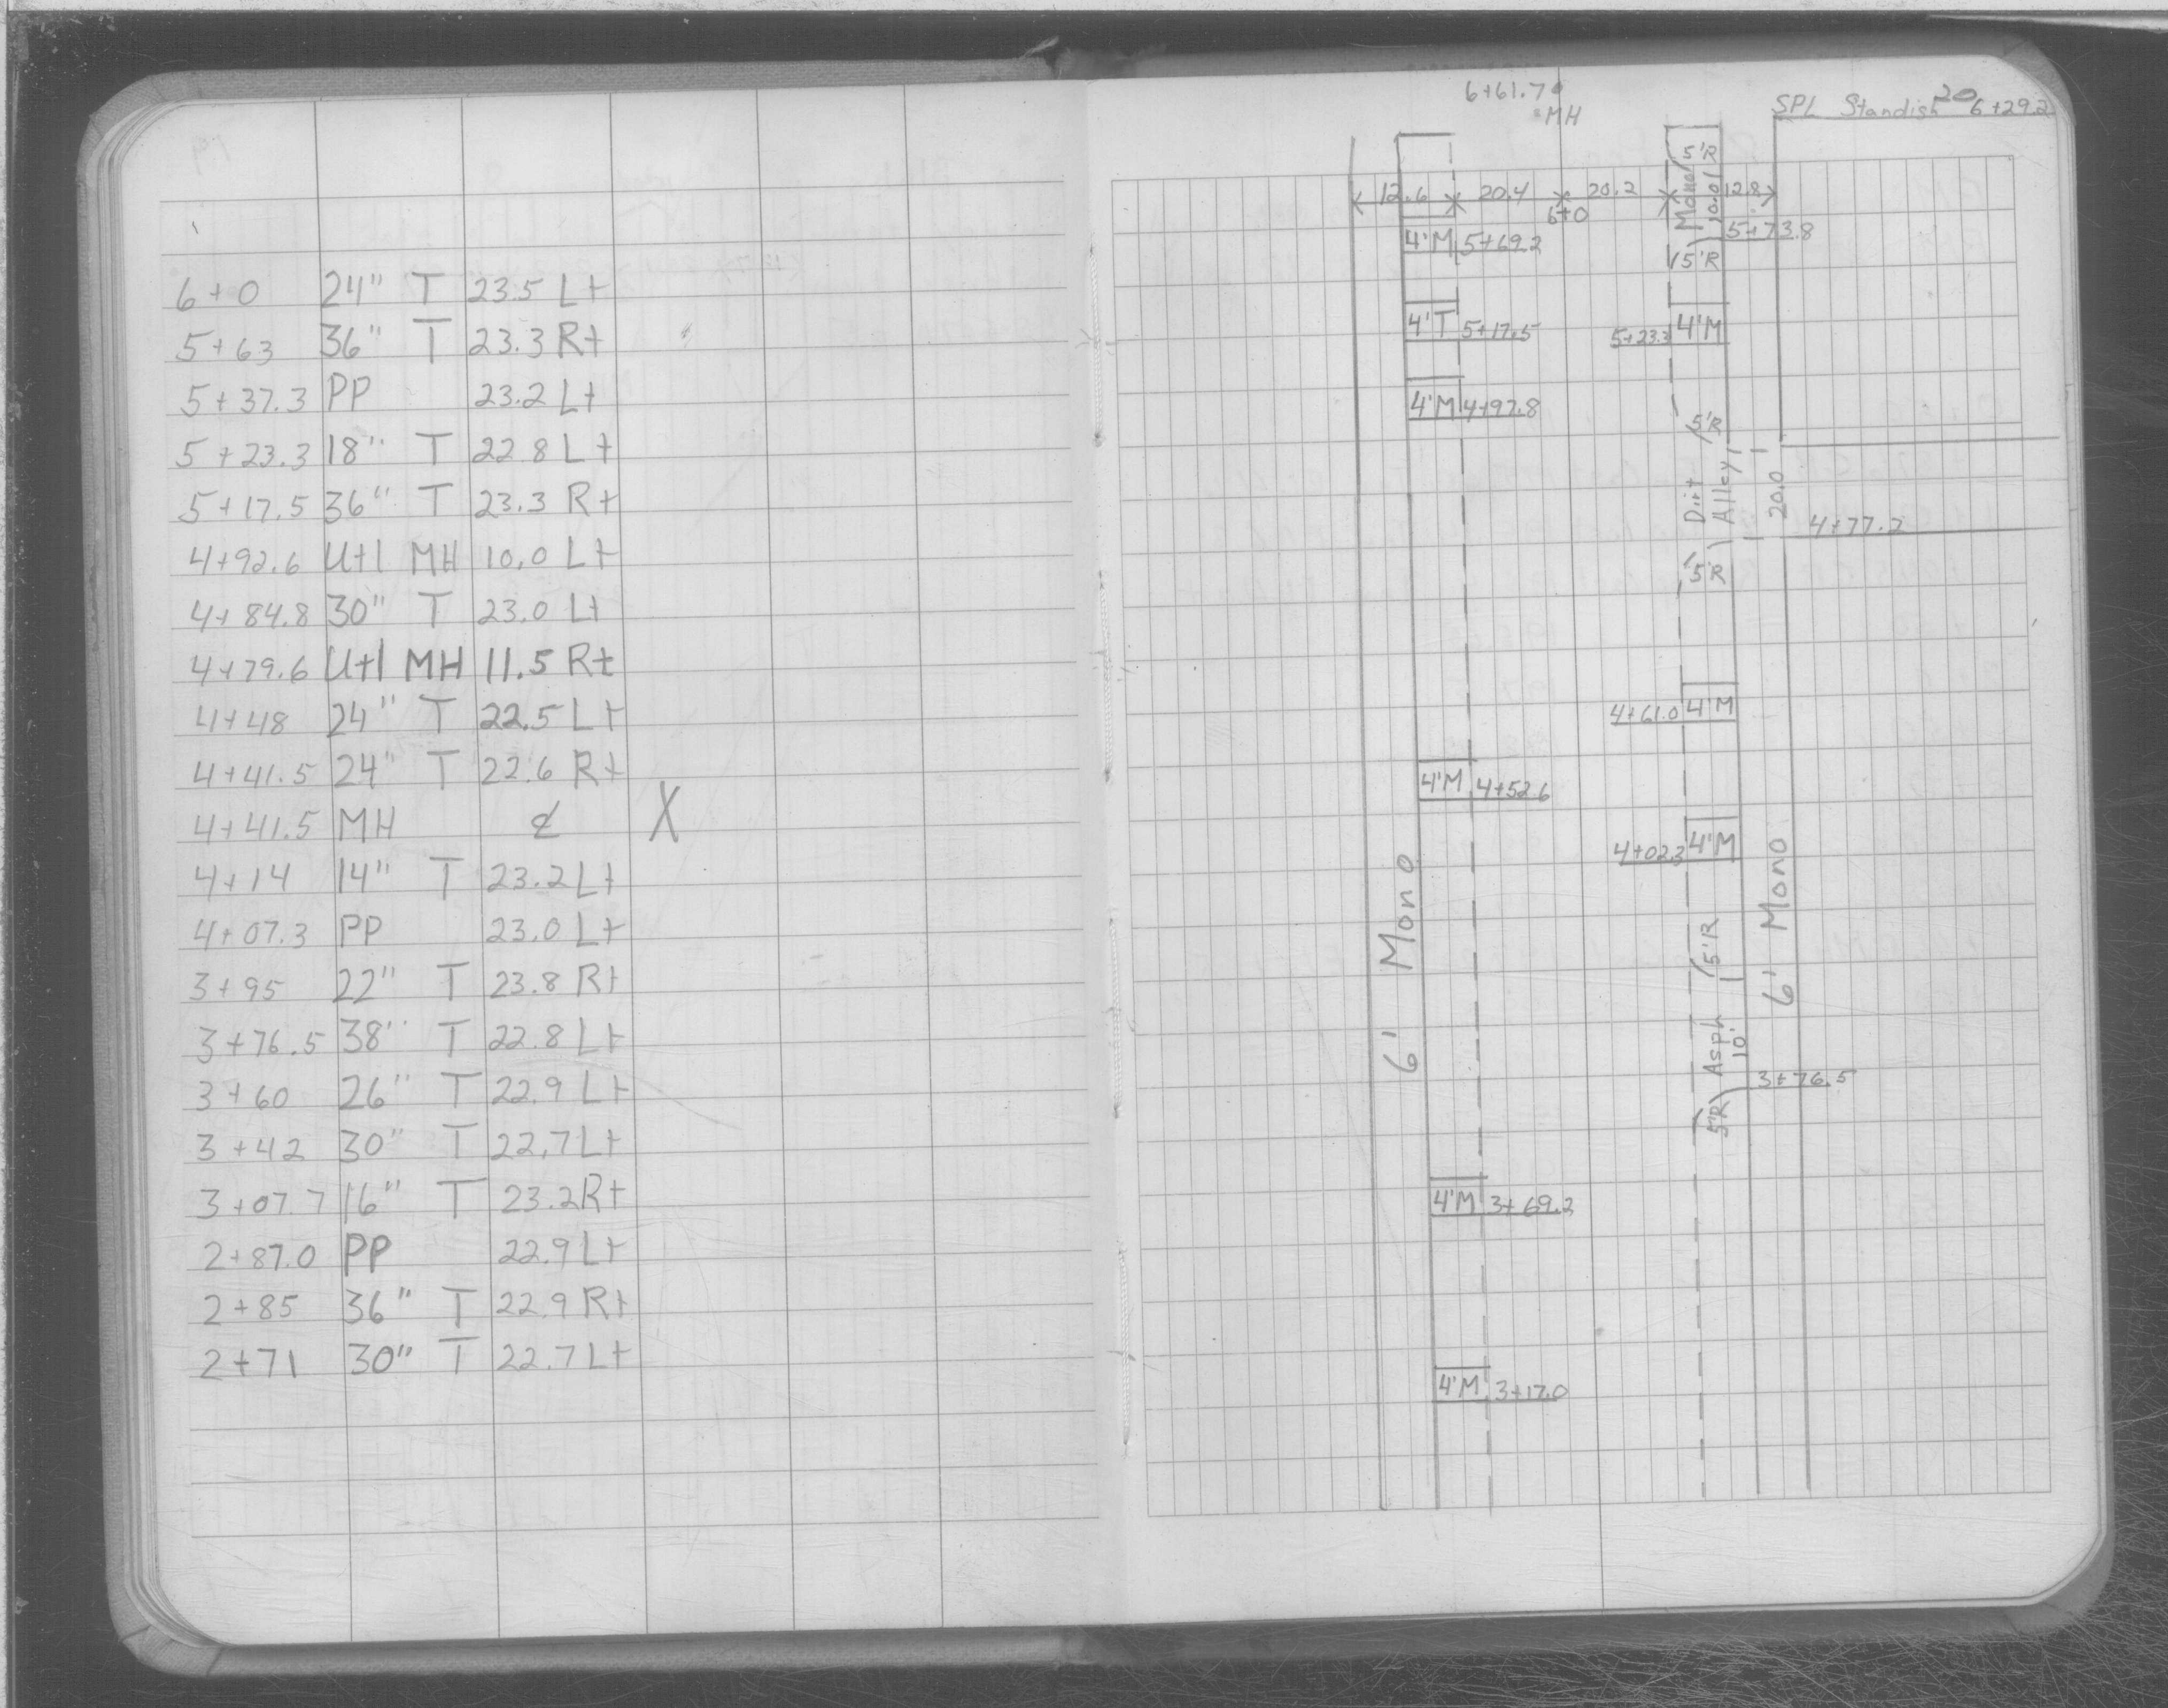 6+0 24" T 23.5 Lt
5+63 36" T 23.3 Rt
5+37.3 PP 23.2 Lt
5+23.3 18" T 22.8 Lt
5+17.5 36" T 23.3 Rt
4+92.6 Utl MH 10.0 Lt
4+84.8 30" T 23.0 Lt
4+79.6 Utl MH 11.5 Rt
4+48 24" T 22.5 Lt
4+41.5 24" T 22.6 Rt
4+41.5 MH ℄ X
4+14 14" T 23.2 Lt
4+07.3 PP 23.0 Lt
3+95 22" T 23.8 Rt
3+76.5 38" T 22.8 Lt
3+60 26" T 22.9 Lt
3+42 30" T 22.7 Lt
3+07.7 16" T 23.2 Rt
2+87.0 PP 22.9 Lt
2+85 36" T 22.9 Rt
2+71 30" T 22.7 Lt
20
6+61.7
MH
SPL Standish 6+29.2
5'R
12.6 20.4 20.2 12.8
Mono 10.0
6+0
4'M 5+69.2
5+73.8
5'R
4'T 5+17.5
5+23.3 4'M
4'M 4+97.8
5'R
Dirt
Alley
20.0
4+77.2
5'R
4+61.0 4'M
4'M 4+52.6
4+02.3 4'M
6' Mono
6' Mono
5'R
Asph
10'
3+76.5
5'R
4'M 3+69.2
4'M 3+17.0